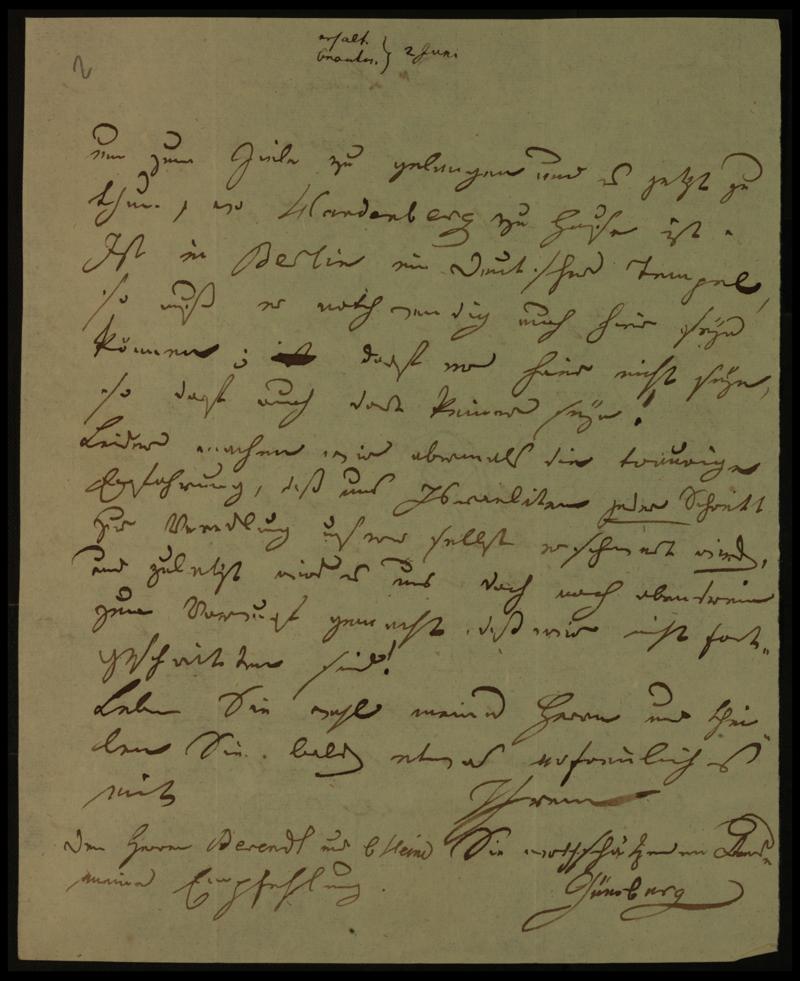 erhalt.
beantw. } 2 Juni
2
um zum Ziele zu gelangen und es jetzt zu
thun, wo Hardenberg zu Hause ist.
Ist in Berlin ein deutscher Tempel,
so muß er nothwendig auch hier seyn
können; darf er hier nicht seyn,
so darf auch dort keiner seyn!
Leider machen wir abermals die traurige
Erfahrung, daß uns Israeliten jeder Schritt
zur Veredlung uns selbst erschwert wird,
und zuletzt wird es uns doch noch obendrein
zum Vorwurf gemacht, daß wir nicht fort-
geschritten sind!
Leben Sie wohl meine Herren und thei
len Sie bald etwas erfreuliches
mit Ihrem
Sie hochschätzenden
Günsburg
Den Herren Berendt und
meine Empfehlung.